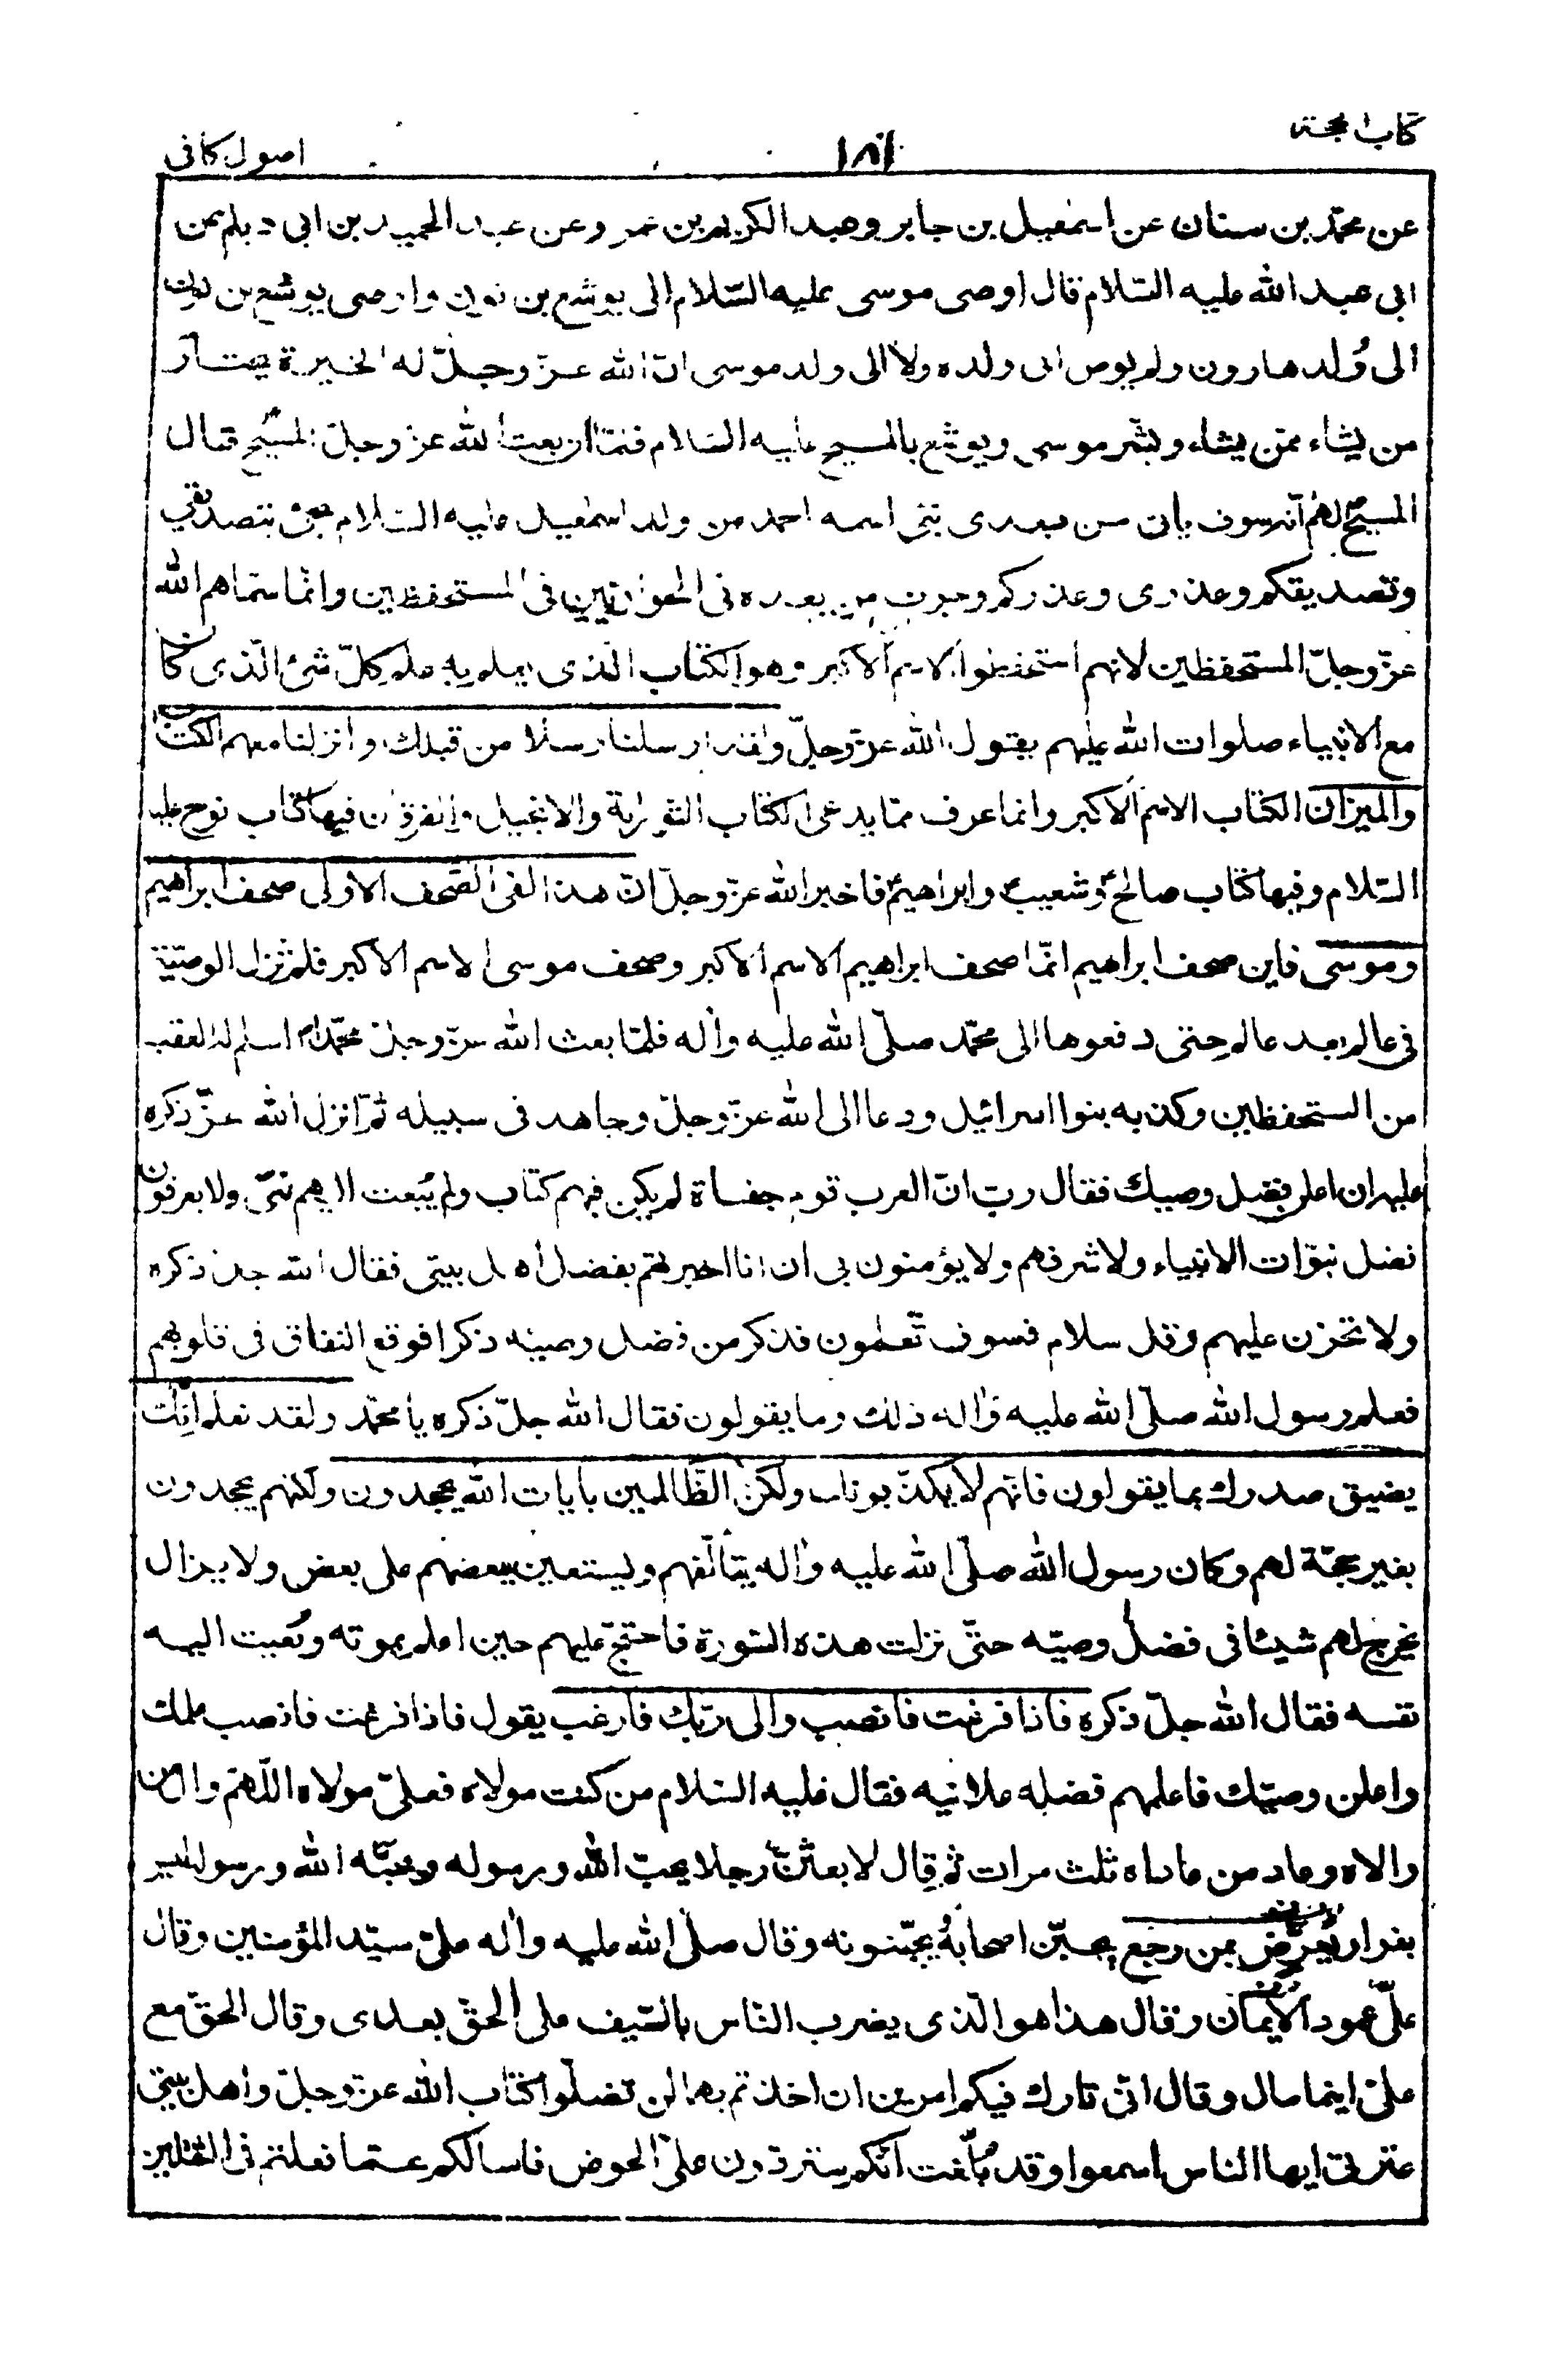 كتاب الحجة
١٨١
اصول كافى
عن محمّد بن سنان عن اسمعيل بن جابر وعبد الكريم بن عمرو عن عبد الحميد بن ابى ديلم عن
ابى عبد الله عليه السّلام قال اوصى موسى عليه السّلام الى يوشع بن نون واوصى يوشع بن نون
الى وُلد هارون ولم يوص الى ولده ولا الى ولد موسى انّ الله عزّ وجلّ له الخيرة يختار
من يشاء ممّن يشاء وبشّر موسى ويوشع بالمسيح عليه السّلام فلمّا ان بعث الله عز وجلّ المسيح قال
المسيح لهم انّه سوف ياتى من بعدى نبىّ اسمه احمد من ولد اسمعيل عليه السّلام يجئ بتصديقى
وتصديقكم وعذرى وعذركم وجرت من بعده فى الحواريّين فى المستحفظين وانّما سمّاهم الله
عزّ وجلّ المستحفظين لانهم استحفظوا الاسم الاكبر وهو الكتاب الّذى يعلم به علم كلّ شئ الّذى كان
مع الانبياء صلوات الله عليهم يقول الله عزّ وجلّ ولقد ارسلنا رسلا من قبلك وانزلنا معهم الكتاب
والميزان الكتاب الاسم الاكبر وانما عرف ممّا يدعى الكتاب التّورية والانجيل والفرقان فيها كتاب نوح عليه
السّلام وفيها كتاب صالح وشعيب وابراهيم فاخبر الله عزّ وجلّ انّ هذا لفى الصّحف الاولى صحف ابراهيم
وموسى فاين صحف ابراهيم انّما صحف ابراهيم الاسم الاكبر وصحف موسى الاسم الاكبر فلم تزل الوصيّة
فى عالم بعد عالم حتى دفعوها الى محمّد صلّى الله عليه واله فلمّا بعث الله عزّ وجلّ محمّدا اسلم له العقب
من المستحفظين وكذبه بنوا اسرائيل ودعا الى الله عزّ وجلّ وجاهد فى سبيله ثمّ انزل الله عزّ ذكره
عليه ان اعلن فضل وصيك فقال ربّ انّ العرب قوم جفاة لم يكن فيهم كتاب ولم يُبعث اليهم نبىّ ولا يعرفون
فضل نبوّات الانبياء ولا شرفهم ولا يؤمنون بى ان انا اخبرتهم بفضل اهل بيتى فقال الله جلّ ذكره
ولا تحزن عليهم وقل سلام فسوف تعلمون فذكر من فضل وصيّه ذكرا فوقع النفاق فى قلوبهم
فعلم رسول الله صلّى الله عليه واله ذلك وما يقولون فقال الله جلّ ذكره يا محمّد ولقد نعلم انّك
يضيق صدرك بما يقولون فانّهم لا يكذّبونك ولكنّ الظّالمين بايات الله يجحدون ولكنهم يجحدون
بغير حجّة لهم وكان رسول الله صلّى الله عليه واله يتألّفهم ويستعين ببعضهم على بعض ولا يزال
يخرج لهم شيئا فى فضل وصيّه حتّى نزلت هذه السّورة فاحتجّ عليهم حين اعلم بموته ونُعيت اليه
نفسه فقال الله جلّ ذكره فاذا فرغت فانصب والى ربّك فارغب يقول فاذا فرغت فانصب علمك
واعلن وصيّك فاعلمهم فضله علانية فقال عليه السّلام من كنت مولاه فعلىّ مولاه اللّهم وال من
والاه وعاد من عاداه ثلث مرات ثم قال لابعثنّ رجلا يحبّ الله ورسوله ويحبّه الله ورسوله ليس
بفرار يُعرِّض بمن رجع يجبّن اصحابه يجبّنونه وقال صلّى الله عليه واله علىّ سيّد المؤمنين وقال
علىّ عمود الايمان وقال هذا هو الّذى يضرب النّاس بالسّيف على الحقّ بعدى وقال الحقّ مع
علىّ اينما مال وقال انّى تارك فيكم امرين ان اخذتم بهما لن تضلّوا كتاب الله عزّ وجلّ واهل بيتى
عترتى ايها الناس اسمعوا وقد بلّغت انّكم ستردّون علىّ الحوض فاسالكم عمّا فعلتم فى الثقلين